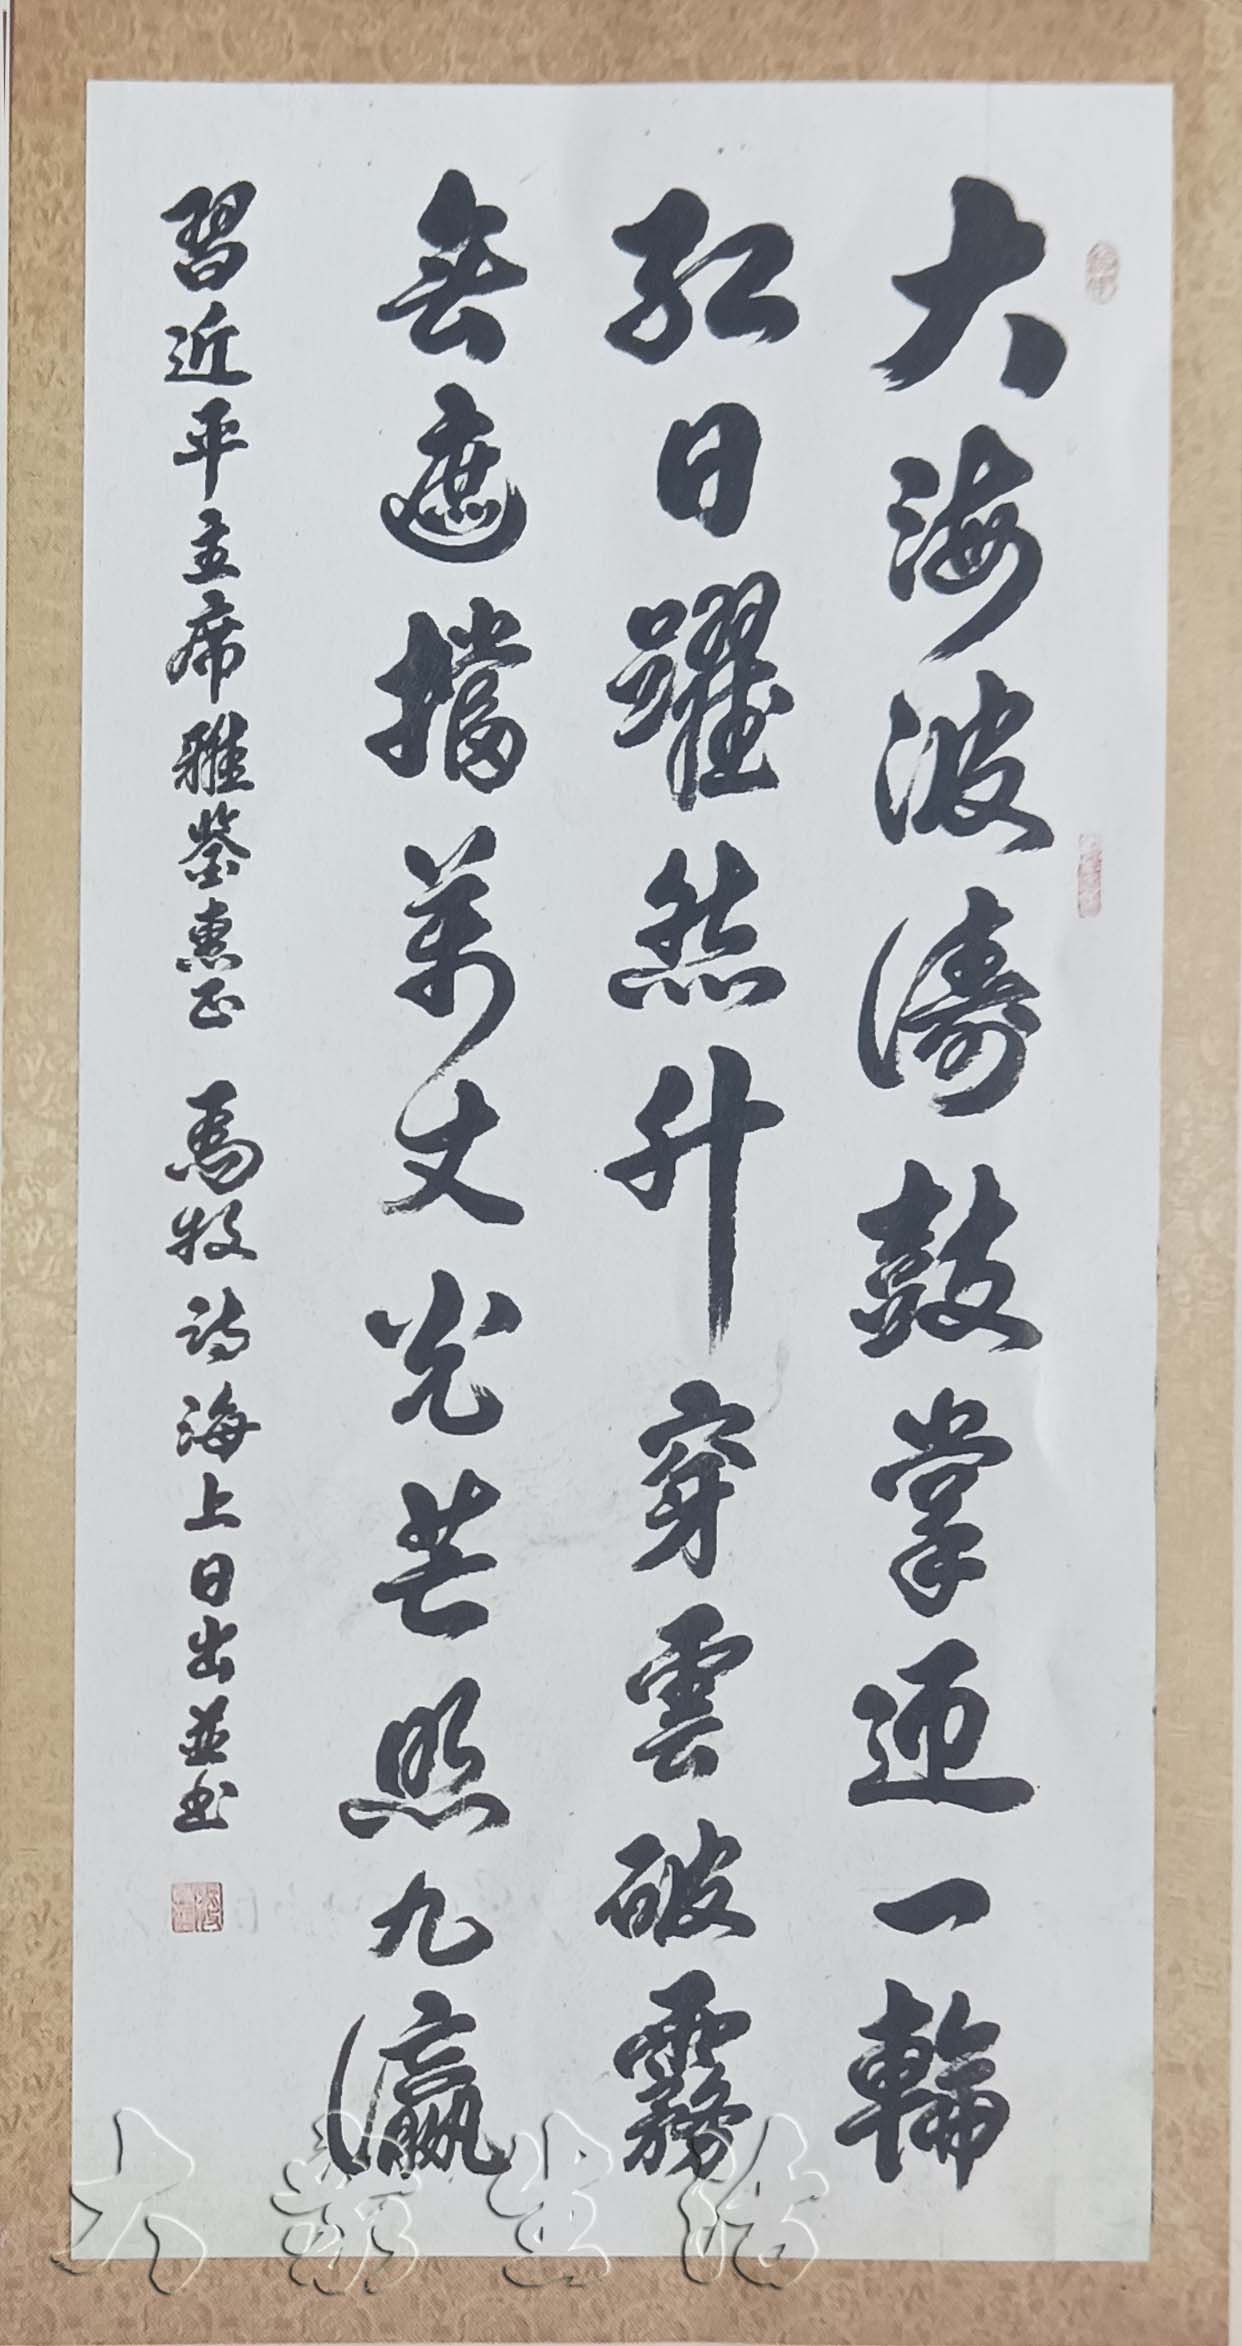 大海波濤鼓掌迎一輪
紅日躍然升穿雲破霧
無遮擋萬丈光芒照九瀛
習近平主席雅鑒惠正 馬牧詩海上日出並书